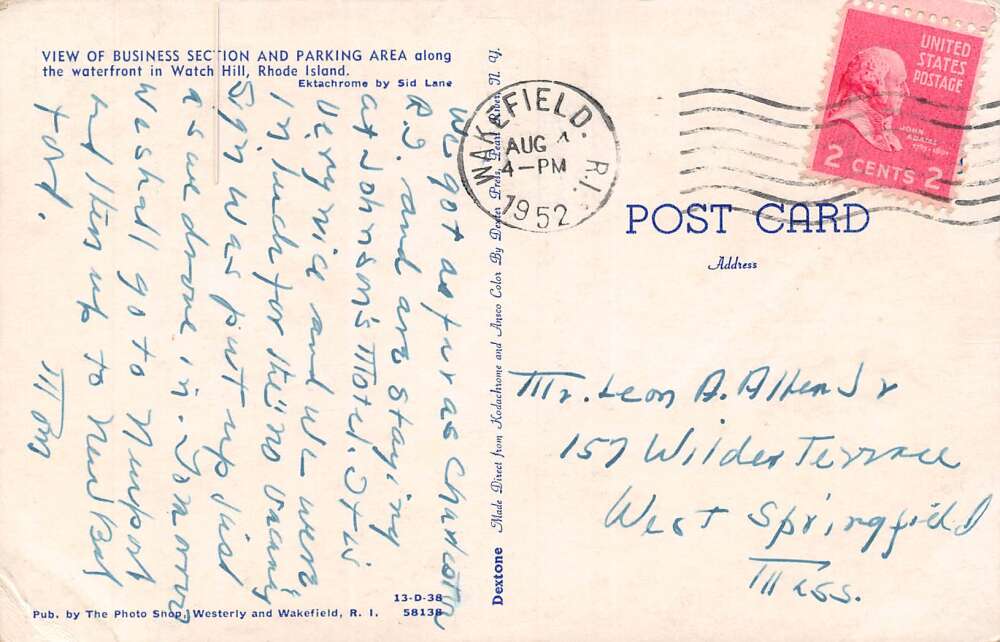 VIEW OF BUSINESS SECTION AND PARKING AREA along
the waterfront in Watch Hill, Rhode Island.
Ektachrome by Sid Lane
We got as fur as Charleston
R.I. and are staying
at Johnson's Motel. It is
very nice and we were
in luck for the "no vacancy"
sign was put up just
as we drove in. Tomorrow
we shall go to Newport
and then up to New Bed
ford.
Mom
13-D-38
58138
Pub. by The Photo Shop, Westerly and Wakefield, R. I.
Dextone Made Direct from Kodachrome and Ansco Color By Dexter Press, Pearl River, N. Y.
WAKEFIELD. R.I.
AUG
4-PM
1952
UNITED
STATES
POSTAGE
JOHN
ADAMS
2 CENTS 2
POST CARD
Address
Mr. Leon A. Allen Jr
157 Wilder Terrace
West Springfield
Mass.